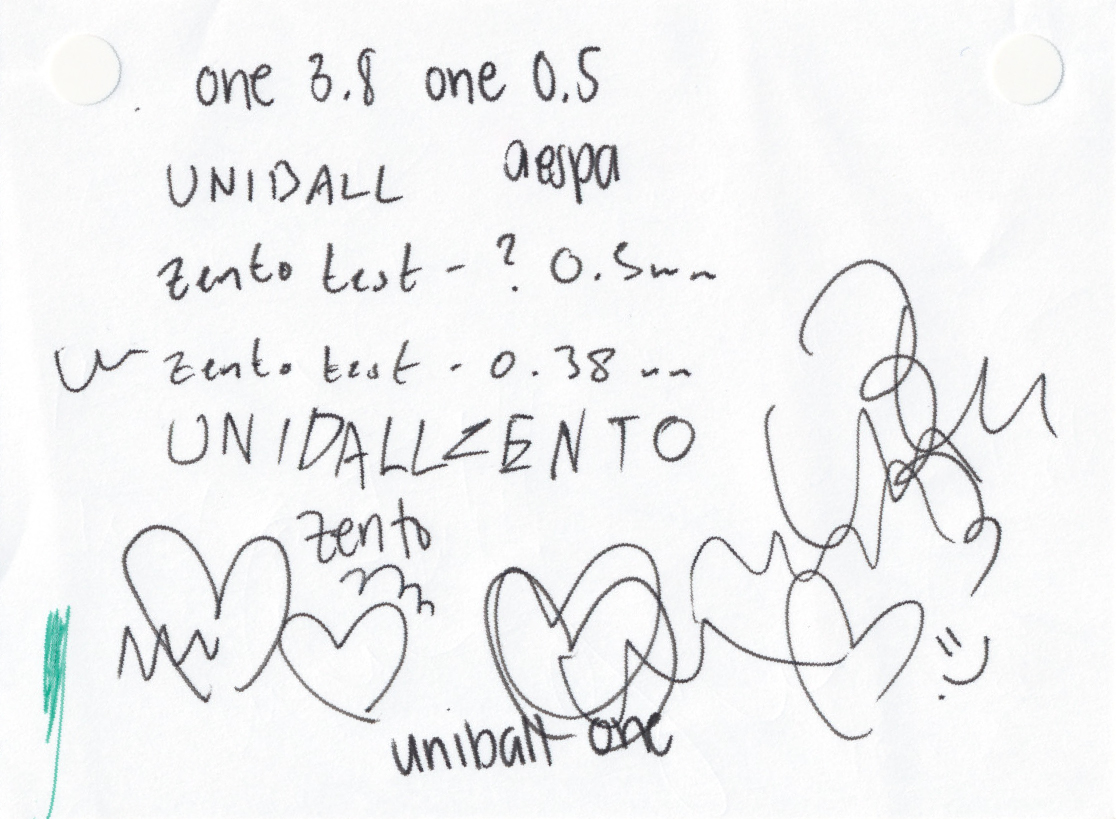 one 3.8 one 0.5
UNIBALL aespa
zento test - ? 0.5mm
zento test - 0.38 mm
UNIBALLZENTO
zento
uniball one